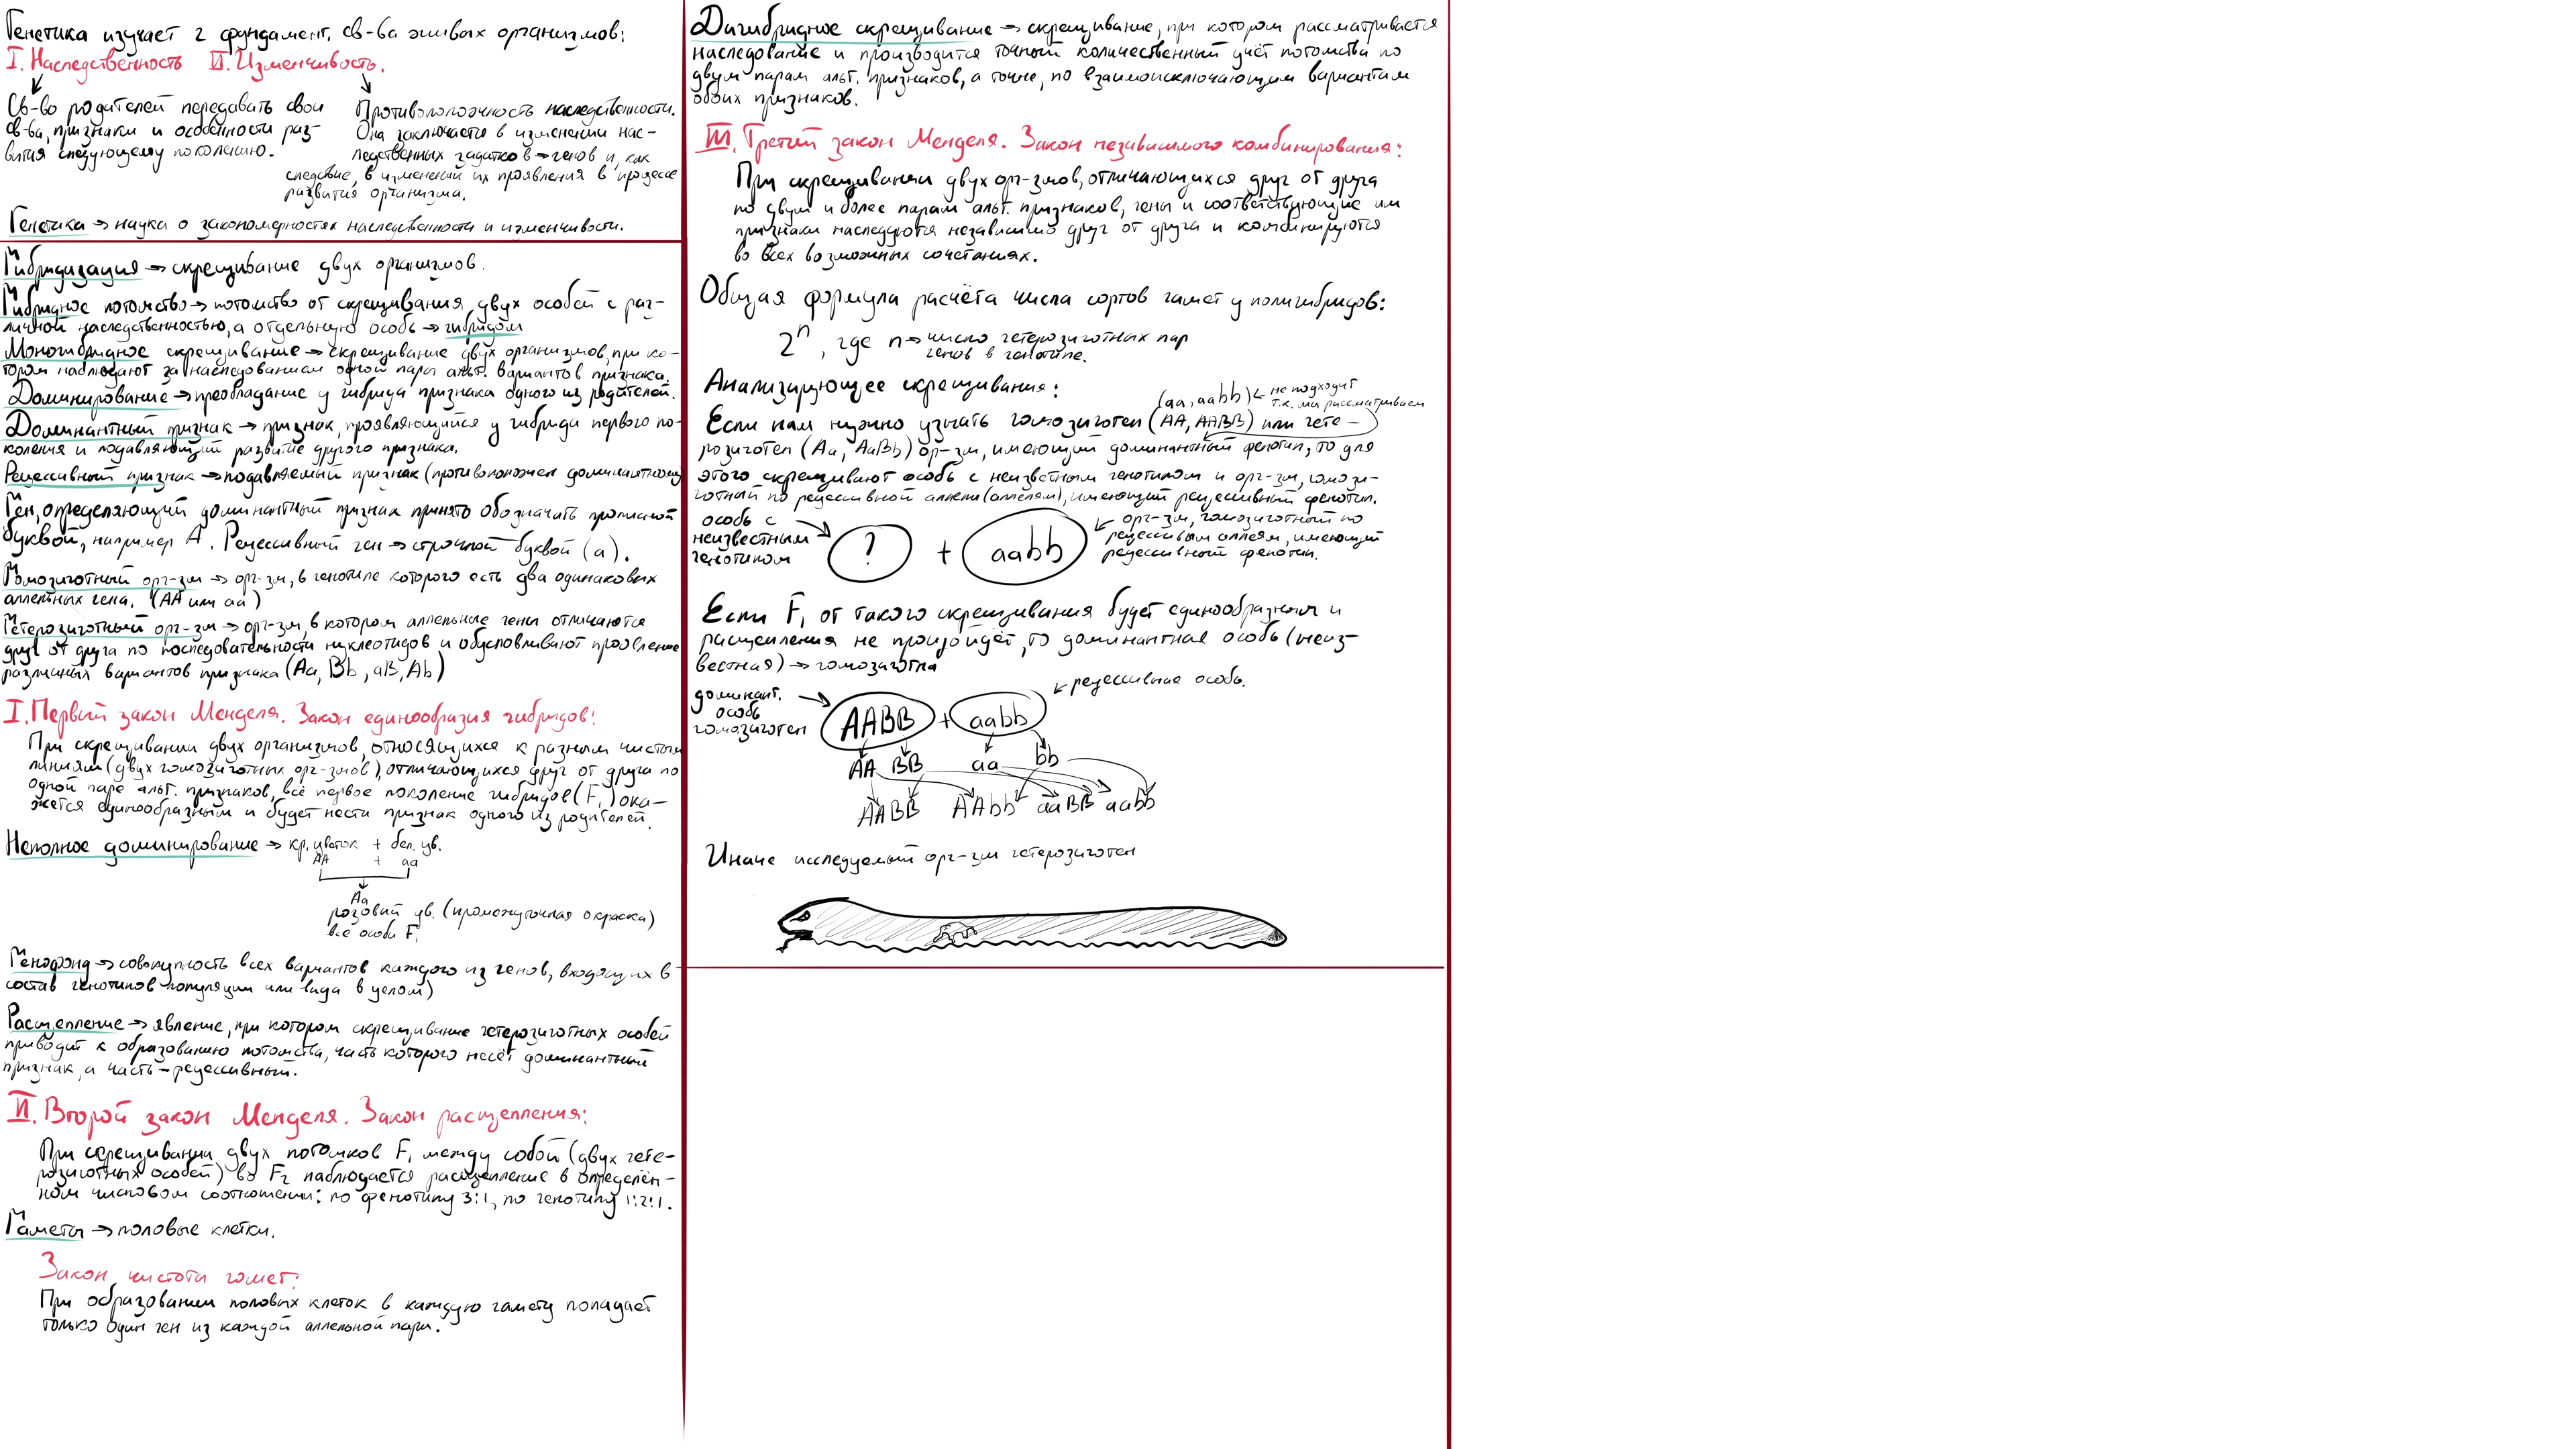 Генетика изучает 2 фундамент. св-ва живых организмов:
I. Наследственность II. Изменчивость.
Св-во родителей передавать свои
св-ва, признаки и особенности раз-
вития следующему поколению.
Противоположность наследственности.
Она заключается в изменении нас-
ледственных задатков → генов и, как
следствие, в изменении их проявления в процессе
развития организма.
Генетика → наука о закономерностях наследственности и изменчивости.
Гибридизация → скрещивание двух организмов.
Гибридное потомство → потомство от скрещивания двух особей с раз-
личной наследственностью, а отдельную особь → гибридом
Моногибридное скрещивание → скрещивание двух организмов, при ко-
тором наблюдают за наследованием одной пары альт. вариантов признака.
Доминирование → преобладание у гибрида признака одного из родителей.
Доминантный признак → признак, проявляющийся у гибрида первого по-
коления и подавляющий развитие другого признака.
Рецессивный признак → подавляемый признак (противоположен доминантному
Ген, определяющий доминантный признак принято обозначать прописной
буквой, например A. Рецессивный ген → строчной буквой (a).
Гомозиготный орг-зм → орг-зм, в генотипе которого есть два одинаковых
аллельных гена. (AA или aa)
Гетерозиготный орг-зм → орг-зм, в котором аллельные гены отличаются
друг от друга по последовательности нуклеотидов и обусловливают проявление
различных вариантов признака (Aa, Bb, aB, Ab)
I. Первый закон Менделя. Закон единообразия гибридов:
При скрещивании двух организмов, относящихся к разным чистым
линиям (двух гомозиготных орг-змов), отличающихся друг от друга по
одной паре альт. признаков, всё первое поколение гибридов (F1) ока-
жется единообразным и будет нести признак одного из родителей.
Неполное доминирование → кр. цветок + бел. цв.
AA + aa
Aa
розовый цв. (промежуточная окраска)
все особи F1
Генофонд → совокупность всех вариантов каждого из генов, входящих в
состав генотипов популяции или вида в целом)
Расщепление → явление, при котором скрещивание гетерозиготных особей
приводит к образованию потомства, часть которого несёт доминантный
признак, а часть - рецессивный.
II. Второй закон Менделя. Закон расщепления:
При скрещивании двух потомков F1 между собой (двух гете-
розиготных особей) во F2 наблюдается расщепление в определён-
ном числовом соотношении: по фенотипу 3:1, по генотипу 1:2:1.
Гаметы → половые клетки.
Закон чистоты гамет:
При образовании половых клеток в каждую гамету попадает
только один ген из каждой аллельной пары.
Дигибридное скрещивание → скрещивание, при котором рассматривается
наследование и производится точный количественный учёт потомства по
двум парам альт. признаков, а точне, по взаимоисключающим вариантам
обоих признаков.
III. Третий закон Менделя. Закон независимого комбинирования:
При скрещивании двух орг-змов, отличающихся друг от друга
по двум и более парам альт. признаков, гены и соответствующие им
признаки наследуются независимо друг от друга и комбинируются
во всех возможных сочетаниях.
Общая формула расчёта числа сортов гамет у полигибридов:
2ⁿ, где n → число гетерозиготных пар
генов в генотипе.
Анализирующее скрещивание:
(aa, aabb) ← не подходит
т.к. мы рассматриваем
Если нам нужно узнать гомозиготен (AA, AABB) или гете-
розиготен (Aa, AaBb) ор-зм, имеющий доминантный фенотип, то для
этого скрещивают особь с неизвестным генотипом и орг-зм, гомози-
готный по рецессивной аллели (аллелям), имеющий рецессивный фенотип.
особь с
неизвестным
генотипом
? + aabb
орг-зм, гомозиготный по
рецессивым аллеям, имеющий
рецессивный фенотип.
Если F1 от такого скрещивания будет единообразным и
расщепления не произойдёт, то доминантная особь (неиз-
вестная) → гомозигота
доминант.
особь
гомозиготен
AABB + aabb
← рецессивная особь.
AA BB aa bb
AABB AAbb aaBB aabb
Иначе исследуемый орг-зм гетерозиготен